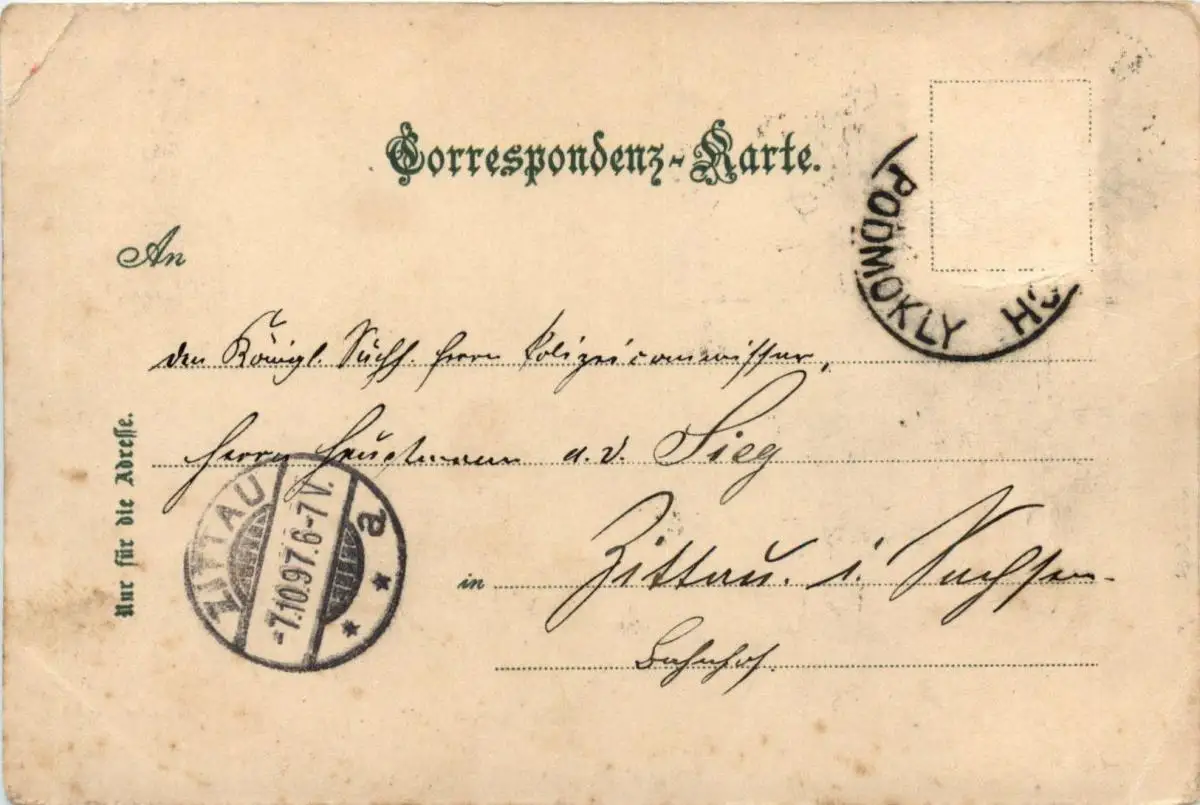 Correspondenz-Karte.
PODMOKLY
An
den Königl. Sächs. Herrn Polizeicommissar,
Herrn Hauptmann a. D. Sieg
Nur für die Adresse.
ZITTAU
-7.10.97.6-7V.
a
in Zittau. i. Sachsen.
Bahnhof.